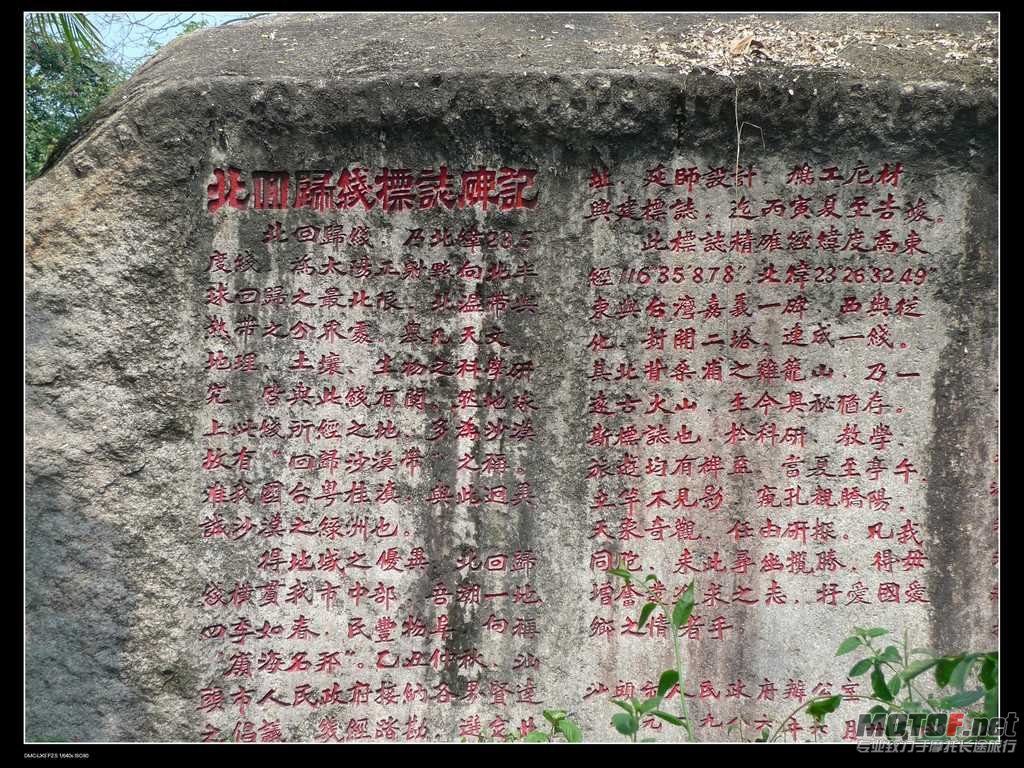 北回歸綫標誌碑記
北回歸綫,乃北緯23.5
度綫,為太陽正射點向北半
球回歸之最北限,北温帶與
熱帶之分界處,舉凡天文、
地理、土壤、生物之科學研
究,皆與此綫有關。然地球
上此綫所經之地,多為沙漠
故有“回歸沙漠帶”之稱。
准我國台粤桂滇,與此迥異
誠沙漠之綠洲也。
得地域之優異,北回歸
綫橫貫我市中部,吾潮一地
四季如春,民豐物阜,向稱
“廣海名邦”。乙丑仲秋,汕
頭市人民政府接納各界賢達
之倡議,綫經踏勘,選定此
址,延師設計,鳩工庀材
興建標誌,迄丙寅夏至告竣。
此標誌精確經緯度為東
經116°35′8.78″,北緯23°26′32.49″
東與台灣嘉義一碑,西與從
化、封開二塔,連成一綫。
其北背桑浦之雞籠山,乃一
遠古火山,至今奥秘猶存。
斯標誌也,於科研、教學、
旅遊均有裨益,當夏至亭午,
立竿不見影,窺孔觀驕陽,
天象奇觀,任由研探。凡我
同胞,來此尋幽攬勝,得毋
增奮發求之志,抒愛國愛
鄉之情者乎
汕頭市人民政府辦公室
一九八六年 月
MOTOF.net
专业致力于摩托长途旅行
DMC-LX1 F2.8 1/640s ISO80